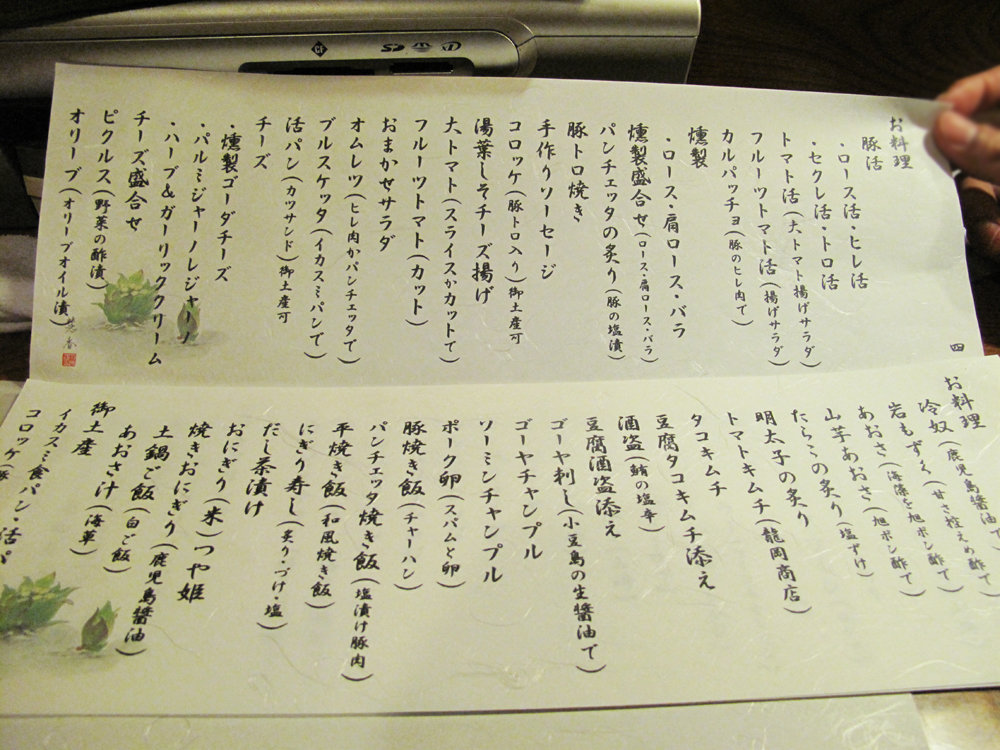 お料理
豚活
・ロース活・ヒレ活
・セクレ活・トロ活
トマト活(大トマト揚げサラダ)
フルーツトマト活(揚げサラダ)
カルパッチョ(豚のヒレ肉で)
燻製
・ロース・肩ロース・バラ
燻製盛合せ(ロース・肩ロース・バラ)
パンチェッタの炙り(豚の塩漬)
豚トロ焼き
手作りソーセージ
コロッケ(豚トロ入り)御土産可
湯葉しそチーズ揚げ
大トマト(スライスかカットで)
フルーツトマト(カット)
おまかせサラダ
オムレツ(ヒレ肉かパンチェッタで)
ブルスケッタ(イカスミパンで)
活パン(カツサンド)御土産可
チーズ
・燻製ゴーダチーズ
・パルミジャーノレジャーノ
・ハーブ&ガーリッククリーム
チーズ盛合せ
ピクルス(野菜の酢漬)
オリーブ(オリーブオイル漬)
四
お料理
冷奴(鹿児島醤油で)
岩もずく(甘さ控えめ酢で)
あおさ(海藻を旭ポン酢で)
山芋あおさ(旭ポン酢で)
たらこの炙り(塩ずけ)
明太子の炙り
トマトキムチ(龍岡商店)
タコキムチ
豆腐タコキムチ添え
酒盗(鮪の塩辛)
豆腐酒盗添え
ゴーヤ刺し(小豆島の生醤油で)
ゴーヤチャンプル
ソーミンチャンプル
ポーク卵(スパムと卵)
豚焼き飯(チャーハン)
パンチェッタ焼き飯(塩漬け豚肉)
平焼き飯(和風焼き飯)
にぎり寿し(炙り・づけ・塩)
だし茶漬け
おにぎり(米)つや姫
焼きおにぎり(鹿児島醤油)
土鍋ご飯(白ご飯)
あおさ汁(海草)
御土産
イカスミ食パン・活パ
コロッケ(豚
CF
SD
xD